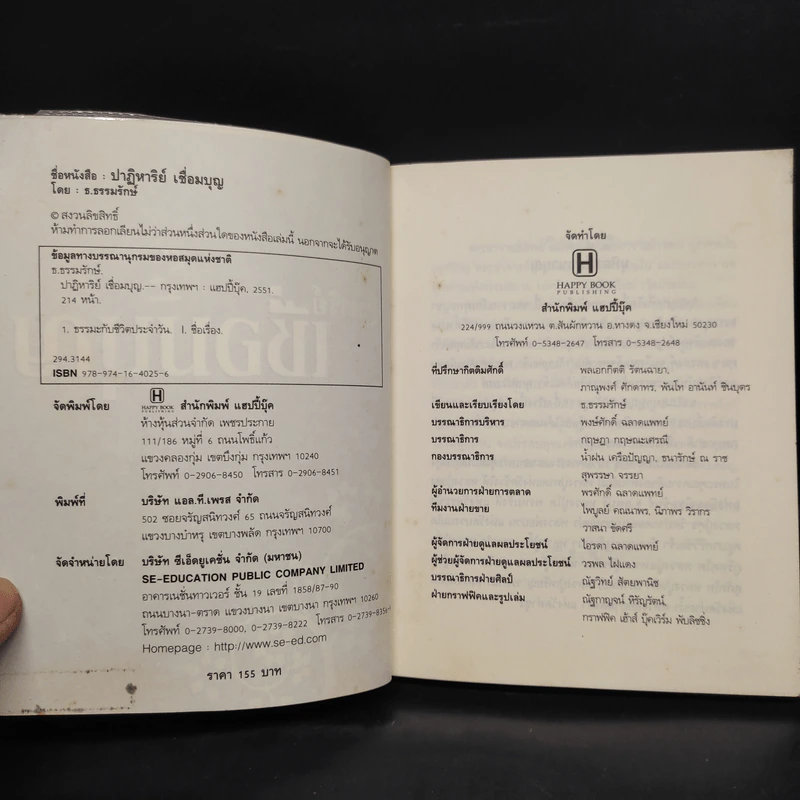 ชื่อหนังสือ : ปาฏิหาริย์ เชื่อมบุญ
โดย : ธ.ธรรมรักษ์
© สงวนลิขสิทธิ์
ห้ามทำการลอกเลียนไม่ว่าส่วนหนึ่งส่วนใดของหนังสือเล่มนี้ นอกจากจะได้รับอนุญาต
ข้อมูลทางบรรณานุกรมของหอสมุดแห่งชาติ
ธ.ธรรมรักษ์.
ปาฏิหาริย์ เชื่อมบุญ.-- กรุงเทพฯ : แฮปปี้บุ๊ค, 2551.
214 หน้า.
1. ธรรมะกับชีวิตประจำวัน. I. ชื่อเรื่อง.
294.3144
ISBN 978-974-16-4025-6
จัดพิมพ์โดย HAPPY BOOK PUBLISHING สำนักพิมพ์ แฮปปี้บุ๊ค
ห้างหุ้นส่วนจำกัด เพชรประกาย
111/186 หมู่ที่ 6 ถนนโพธิ์แก้ว
แขวงคลองกุ่ม เขตบึงกุ่ม กรุงเทพฯ 10240
โทรศัพท์ 0-2906-8450 โทรสาร 0-2906-8451
พิมพ์ที่ บริษัท แอล.ที.เพรส จำกัด
502 ซอยจรัญสนิทวงศ์ 65 ถนนจรัญสนิทวงศ์
แขวงบางบำหรุ เขตบางพลัด กรุงเทพฯ 10700
จัดจำหน่ายโดย บริษัท ซีเอ็ดยูเคชั่น จำกัด (มหาชน)
SE-EDUCATION PUBLIC COMPANY LIMITED
อาคารเนชั่นทาวเวอร์ ชั้น 19 เลขที่ 1858/87-90
ถนนบางนา-ตราด แขวงบางนา เขตบางนา กรุงเทพฯ 10260
โทรศัพท์ 0-2739-8000, 0-2739-8222 โทรสาร 0-2739-8356-
Homepage : http://www.se-ed.com
ราคา 155 บาท
จัดทำโดย
H
HAPPY BOOK
PUBLISHING
สำนักพิมพ์ แฮปปี้บุ๊ค
224/999 ถนนวงแหวน ต.สันผักหวาน อ.หางดง จ.เชียงใหม่ 50230
โทรศัพท์ 0-5348-2647 โทรสาร 0-5348-2648
ที่ปรึกษากิตติมศักดิ์ พลเอกกิตติ รัตนฉายา,
ภาณุพงศ์ ศักดาทร, พันโท อานันท์ ชินบุตร
เขียนและเรียบเรียงโดย ธ.ธรรมรักษ์
บรรณาธิการบริหาร พงษ์ศักดิ์ ฉลาดแพทย์
บรรณาธิการ กฤษฎา กฤษณะเศรณี
กองบรรณาธิการ น้ำฝน เครือปัญญา, ธนารักษ์ ณ ราช
สุพรรษา จรรยา
ผู้อำนวยการฝ่ายการตลาด พรศักดิ์ ฉลาดแพทย์
ทีมงานฝ่ายขาย ไพบูลย์ คณนาพร, นิภาพร วิรากร
วาสนา ขัตศรี
ผู้จัดการฝ่ายดูแลผลประโยชน์ ไอรดา ฉลาดแพทย์
ผู้ช่วยผู้จัดการฝ่ายดูแลผลประโยชน์ วรพล ไฝแดง
บรรณาธิการฝ่ายศิลป์ ณัฐวิทย์ สัตยพานิช
ฝ่ายกราฟฟิคและรูปเล่ม ณัฐกาญจน์ หิรัญรัตน์,
กราฟฟิค เฮ้าส์ บุ๊คเวิร์ม พับลิชชิ่ง